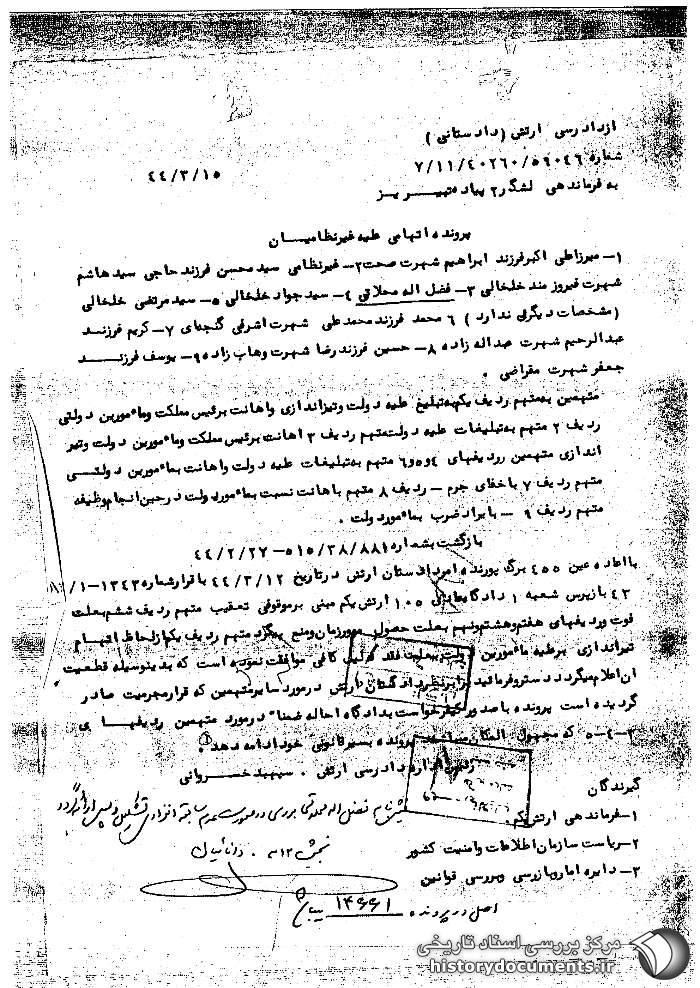 ازدادرسی ارتش (دادستانی)
شماره ۷/۱۱/٤۰۲٦۰/۵۹۰٤٦
٤٤/۳/۱۵
به فرماندهی لشگر۲ پیاده تبریز
پرونده اتهامی علیه غیرنظامیان
۱- میرزاعلی اکبرفرزند ابراهیم شهرت صحت ۲- غیرنظامی سید محسن فرزند حاجی سیدهاشم
شهرت فیروزمند خلخالی ۳- فضل اله محلاتی ٤- سیدجواد خلخالی ۵- سیدمرتضی خلخالی
(مشخصات دیگری ندارد) ٦ محمد فرزند محمدعلی شهرت اشرفی گنجه‌ای ۷- کریم فرزند
عبدالرحیم شهرت عبداله زاده ۸- حسین فرزند رضا شهرت وهاب زاده ۹- یوسف فرزند
جعفر شهرت مقراضی .
متهمین به متهم ردیف یکم به تبلیغ علیه دولت وتیراندازی واهانت برئیس مملکت ومامورین دولتی
ردیف ۲ متهم به تبلیغات علیه دولت متهم ردیف ۳ اهانت برئیس مملکت ومامورین دولت وتیر
اندازی متهمین ردیفهای ٤و۵و٦ متهم به تبلیغات علیه دولت واهانت بمامورین دولتی
متهم ردیف ۷ باخفای جرم - ردیف ۸ متهم باهانت نسبت بمامور دولت در حین انجام وظیفه
متهم ردیف ۹ - بایراد ضرب بمامور دولت .
بازگشت بشماره ۵۱۵/۳۸/۸۸۱- ٤٤/۲/۲۷
بااعاده عین ٤۵۵ برگ پرونده امر دادستان ارتش در تاریخ ٤٤/۳/۱۲ با قرار شماره ۱۳٤۳-۱/
٤۳ بازپرس شعبه ۱ دادگاه ۱۰۵ ارتش یکم مبنی بر موقوفی تعقیب متهم ردیف ششم بعلت
فوت وردیفهای هفتم وهشتم ونهم بعلت حصول مرور زمان ومنع پیگرد متهم ردیف یکم ازلحاظ اتهام
تیراندازی برعلیه مامورین دولت بعلت فقد دلیل کافی موافقت نموده است که بدینوسیله قطعیت
آن اعلام میگردد دستور فرمائید برابر نظر دادستان ارتش درمورد سایر متهمین که قرار مجرمیت صادر
گردیده است پرونده با صدور کیفرخواست بدادگاه احاله ضمنا درمورد متهمین ردیفهای
۳-٤-۵ که مجهول المکان پرونده بسیر قانونی خود ادامه دهد .
رئیس اداره دادرسی ارتش . سپهبد خسروانی
گیرندگان
۱- فرماندهی ارتش یکم.
۲- ریاست سازمان اطلاعات وامنیت کشور
۳- دایره آمار وبازرسی وبررسی قوانین
فضل اله محلاتی بررسی در صورت عدم سابقه انفرادی تشکیل
بخش ۳۱۲
اصل در پرونده ۱۴۶۶۱
مرکز بررسی اسناد تاریخی
historydocuments.ir